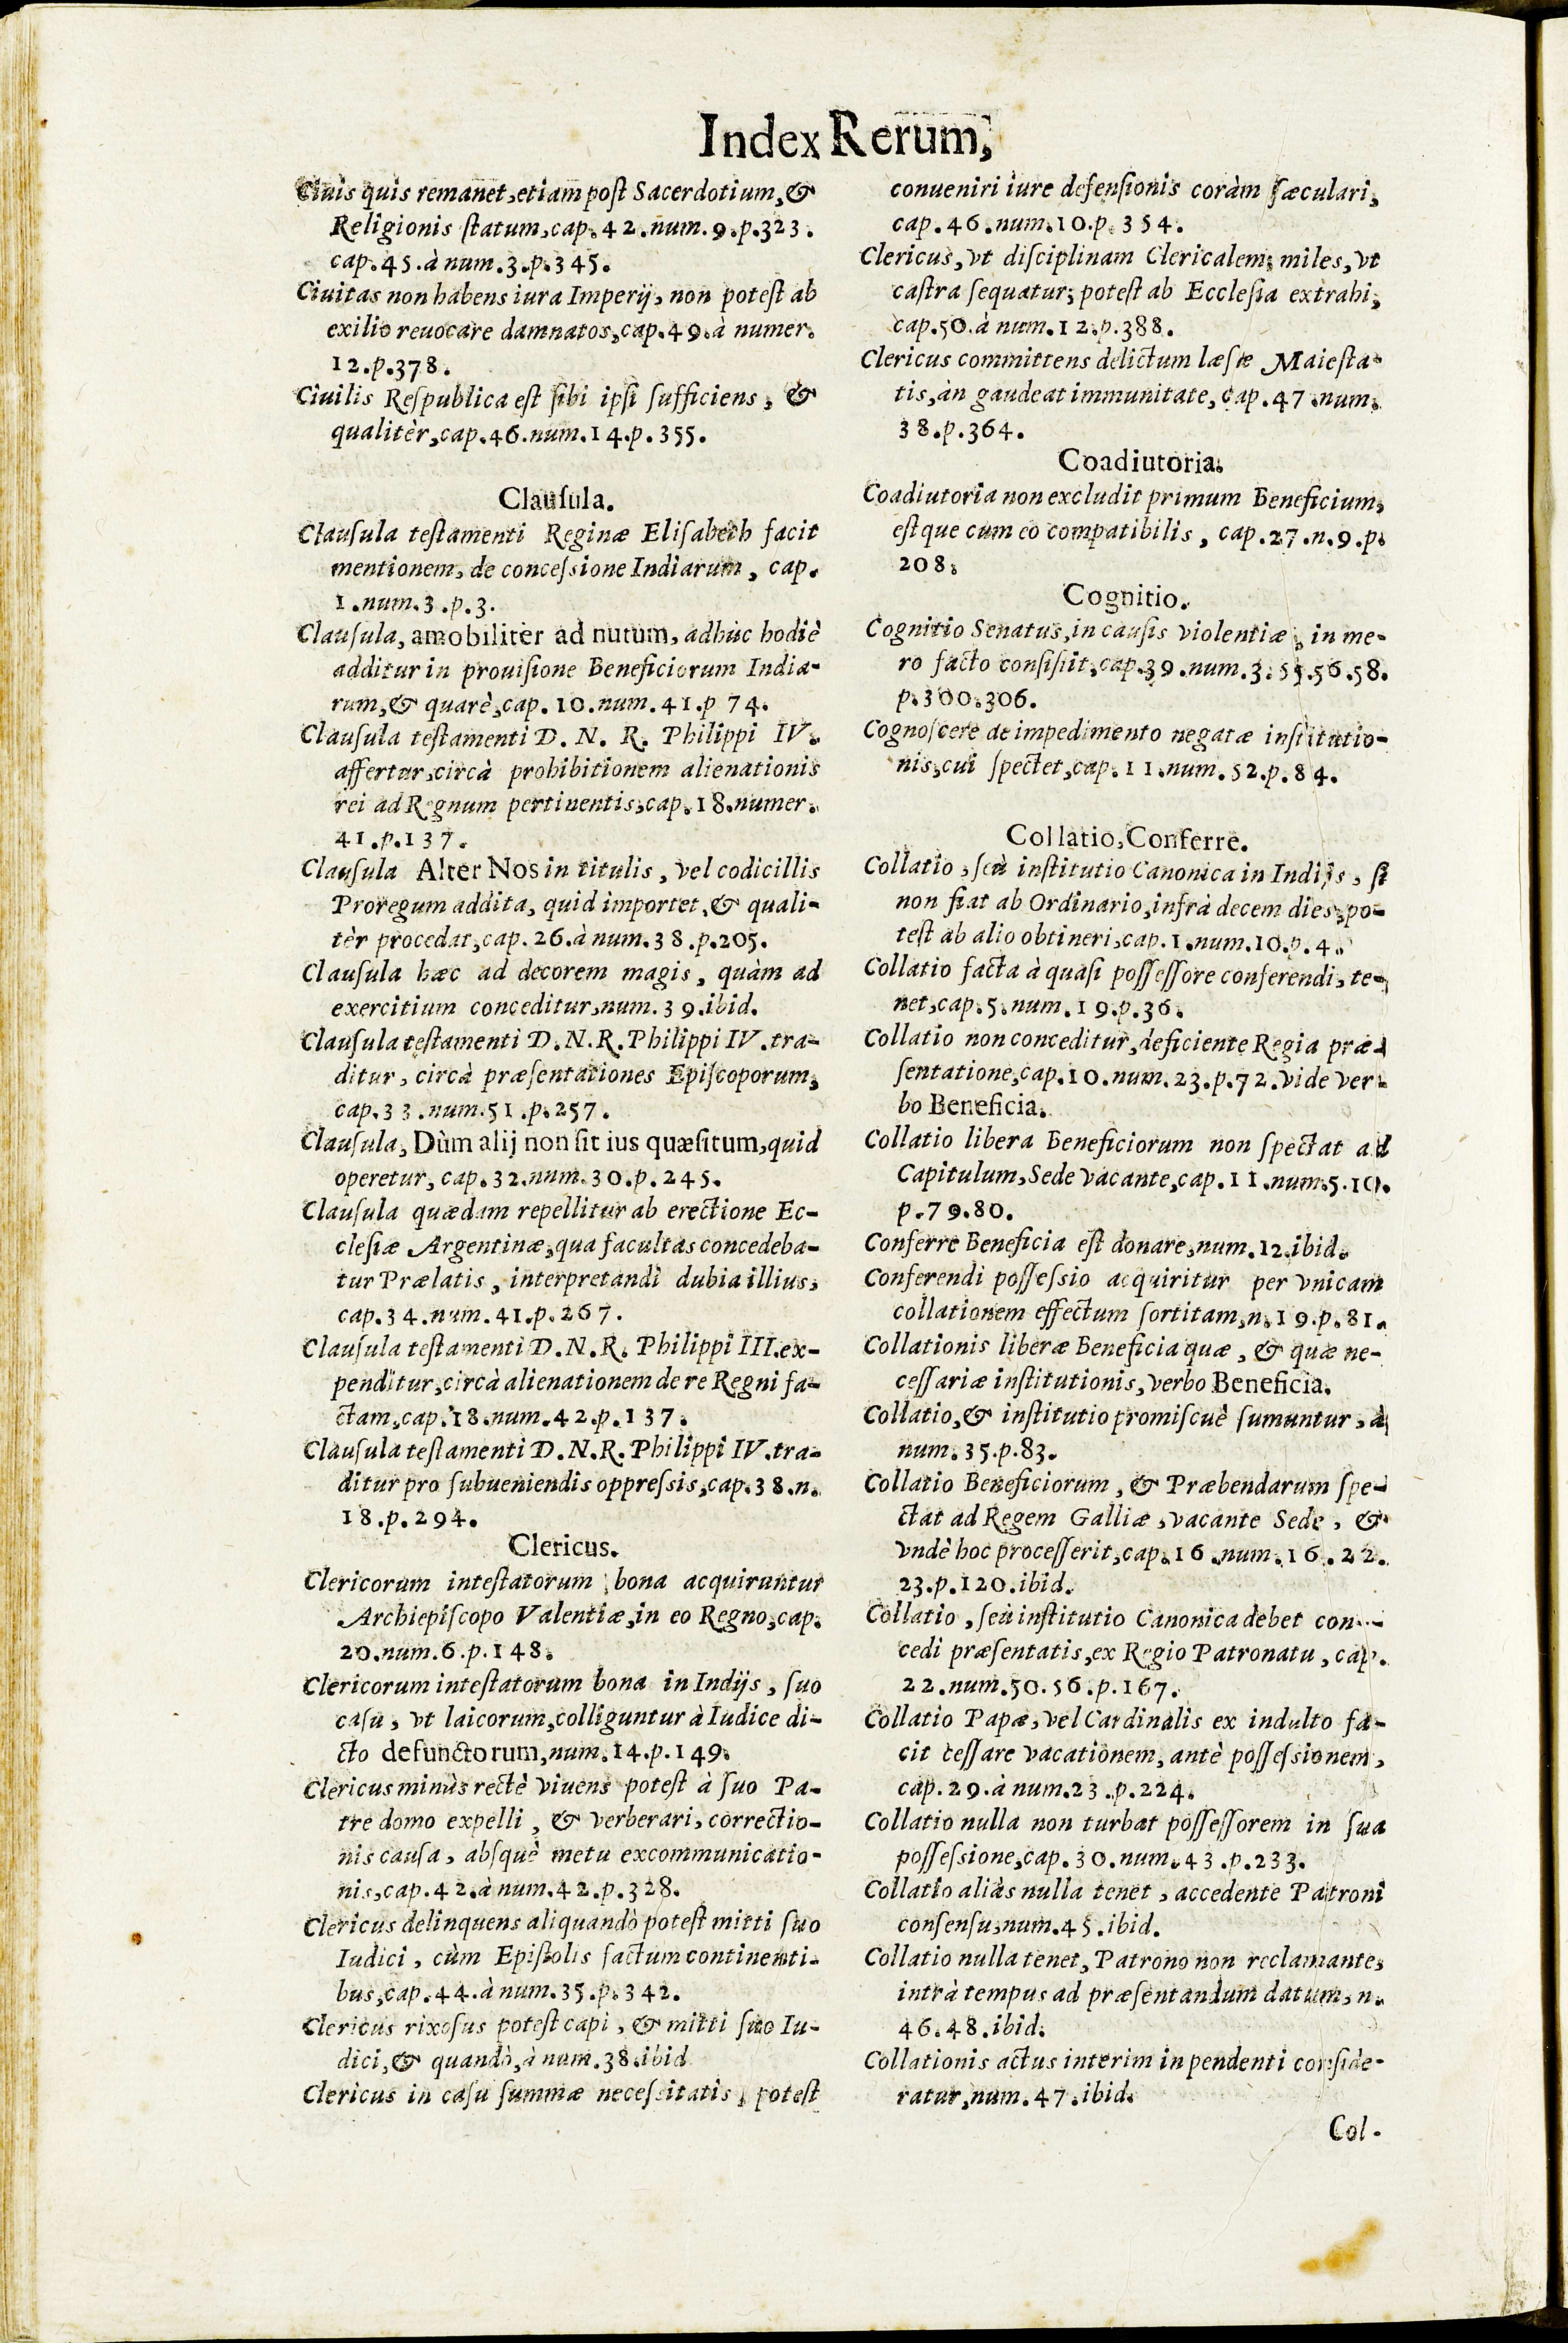 Index Rerum,
Ciuis quis remanet, etiam post Sacerdotium, &
Religionis statum, cap. 42. num. 9. p. 323.
cap. 45. à num. 3. p. 345.
Ciuitas non habens iura Imperij, non potest ab
exilio reuocare damnatos, cap. 49. à numer.
12. p. 378.
Ciuilis Respublica est sibi ipsi sufficiens, &
qualitèr, cap. 46. num. 14. p. 355.
Clausula.
Clausula testamenti Reginæ Elisabeth facit
mentionem, de concessione Indiarum, cap.
1. num. 3. p. 3.
Clausula, amobiliter ad nutum, adhùc hodiè
additur in prouisione Beneficiorum India-
rum, & quarè, cap. 10. num. 41. p 74.
Clausula testamenti D. N. R. Philippi IV.
affertur, circà prohibitionem alienationis
rei ad Regnum pertinentis, cap. 18. numer.
41. p. 137.
Clausula Alter Nos in titulis, vel codicillis
Proregum addita, quid importet, & quali-
tèr procedat, cap. 26. à num. 38. p. 205.
Clausula hæc ad decorem magis, quàm ad
exercitium conceditur, num. 39. ibid.
Clausula testamenti D. N. R. Philippi IV. tra-
ditur, circà præsentationes Episcoporum,
cap. 33. num. 51. p. 257.
Clausula, Dùm alij non sit ius quæsitum, quid
operetur, cap. 32. num. 30. p. 245.
Clausula quædam repellitur ab erectione Ec-
clesiæ Argentinæ, qua facultas concedeba-
tur Prælatis, interpretandi dubia illius,
cap. 34. num. 41. p. 267.
Clausula testamenti D. N. R. Philippi III. ex-
penditur, circà alienationem de re Regni fa-
ctam, cap. 18. num. 42. p. 137.
Clausula testamenti D. N. R. Philippi IV. tra-
ditur pro subueniendis oppressis, cap. 38. n.
18. p. 294.
Clericus.
Clericorum intestatorum bona acquiruntur
Archiepiscopo Valentiæ, in eo Regno, cap.
20. num. 6. p. 148.
Clericorum intestatorum bona in Indijs, suo
casu, vt laicorum, colliguntur à Iudice di-
cto defunctorum, num. 14. p. 149.
Clericus minùs rectè viuens potest à suo Pa-
tre domo expelli, & verberari, correctio-
nis causa, absquè metu excommunicatio-
nis, cap. 42. à num. 42. p. 328.
Clericus delinquens aliquandò potest mitti suo
Iudici, cùm Epistolis factum continenti-
bus, cap. 44. à num. 35. p. 342.
Clericus rixosus potest capi, & mitti suo Iu-
dici, & quandò, à num. 38. ibid
Clericus in casu summæ necessitatis, potest
conueniri iure defensionis coràm sæculari,
cap. 46. num. 10. p. 354.
Clericus, vt disciplinam Clericalem; miles, vt
castra sequatur; potest ab Ecclesia extrahi,
cap. 50. à num. 12. p. 388.
Clericus committens delictum læsæ Maiesta-
tis, àn gaudeat immunitate, cap. 47. num.
38. p. 364.
Coadiutoria.
Coadiutoria non excludit primum Beneficium,
estque cum eo compatibilis, cap. 27. n. 9. p.
208.
Cognitio.
Cognitio Senatus, in causis violentiæ, in me-
ro facto consistit, cap. 39. num. 3. 55. 56. 58.
p. 300. 306.
Cognoscere de impedimento negatæ institutio-
nis, cui spectet, cap. 11. num. 52. p. 84.
Collatio, Conferre.
Collatio, seù institutio Canonica in Indijs, si
non fiat ab Ordinario, infrà decem dies, po-
test ab alio obtineri, cap. 1. num. 10. p. 4.
Collatio facta à quasi possessore conferendi, te-
net, cap. 5. num. 19. p. 36.
Collatio non conceditur, deficiente Regia præ-
sentatione, cap. 10. num. 23. p. 72. vide ver-
bo Beneficia.
Collatio libera Beneficiorum non spectat ad
Capitulum, Sede vacante, cap. 11. num. 5. 10.
p. 79. 80.
Conferre Beneficia est donare, num. 12. ibid.
Conferendi possessio acquiritur per vnicam
collationem effectum sortitam, n. 19. p. 81.
Collationis liberæ Beneficia quæ, & quæ ne-
cessariæ institutionis, verbo Beneficia.
Collatio, & institutio promiscuè sumuntur, à
num. 35. p. 83.
Collatio Beneficiorum, & Præbendarum spe-
ctat ad Regem Galliæ, vacante Sede, &
vndè hoc processerit, cap. 16. num. 16. 22.
23. p. 120. ibid.
Collatio, seù institutio Canonica debet con-
cedi præsentatis, ex Regio Patronatu, cap.
22. num. 50. 56. p. 167.
Collatio Papæ, vel Cardinalis ex indulto fa-
cit cessare vacationem, antè possessionem,
cap. 29. à num. 23. p. 224.
Collatio nulla non turbat possessorem in sua
possessione, cap. 30. num. 43. p. 233.
Collatio aliàs nulla tenet, accedente Patroni
consensu, num. 45. ibid.
Collatio nulla tenet, Patrono non reclamante,
intrà tempus ad præsentandum datum, n.
46. 48. ibid.
Collationis actus interim in pendenti conside-
ratur, num. 47. ibid.
Col-